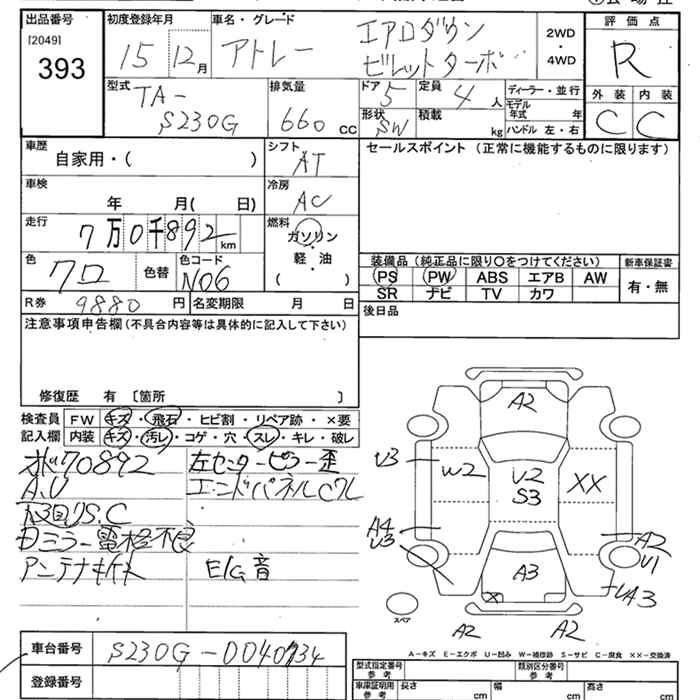 出品番号
[2049]
393
初度登録年月
15 12月
車名・グレード
アトレー
エアロダウン
ビレットターボ
2WD
・
4WD
評価点
R
外装 内装
C C
型式
TA-
S230G
排気量
660 cc
ドア 5
形状 SW
定員 4 人
積載 kg
ディーラー・並行
モデル
年式 年
ハンドル 左・右
車歴
自家用・( )
シフト
AT
セールスポイント (正常に機能するものに限ります)
車検
年 月( 日)
冷房
AC
走行
7万0千892 km
燃料
ガソリン
・
軽・油
・
( )
色
クロ
色替
色コード
N06
装備品 (純正品に限り〇をつけてください)
PS PW ABS エアB AW
SR ナビ TV カワ
新車保証書
有・無
R券 9880 円
名変期限 月 日
後日品
注意事項申告欄 (不具合内容等は具体的に記入して下さい)
修復歴 有 〔箇所 〕
検査員
記入欄
FW キズ・飛石・ヒビ割・リペア跡・×要
内装 キズ・汚レ・コゲ・穴・スレ・キレ・破レ
70892
A、U
S、C
ミラー電格不良
アンテナ
左センターピラー歪
エンドパネルCズレ
E/G音
A2
U3
W2
U2
S3
XX
A4
U3
A2
U1
A3
X
UA3
A2
A2
スペア
A-キズ E-エクボ U-凹み W-補修跡 S-サビ C-腐食 XX-交換済
車台番号
S230G-0040734
登録番号
型式指定番号
参考
類別区分番号
参考
車庫証明用
参考
長さ cm
幅 cm
高さ cm